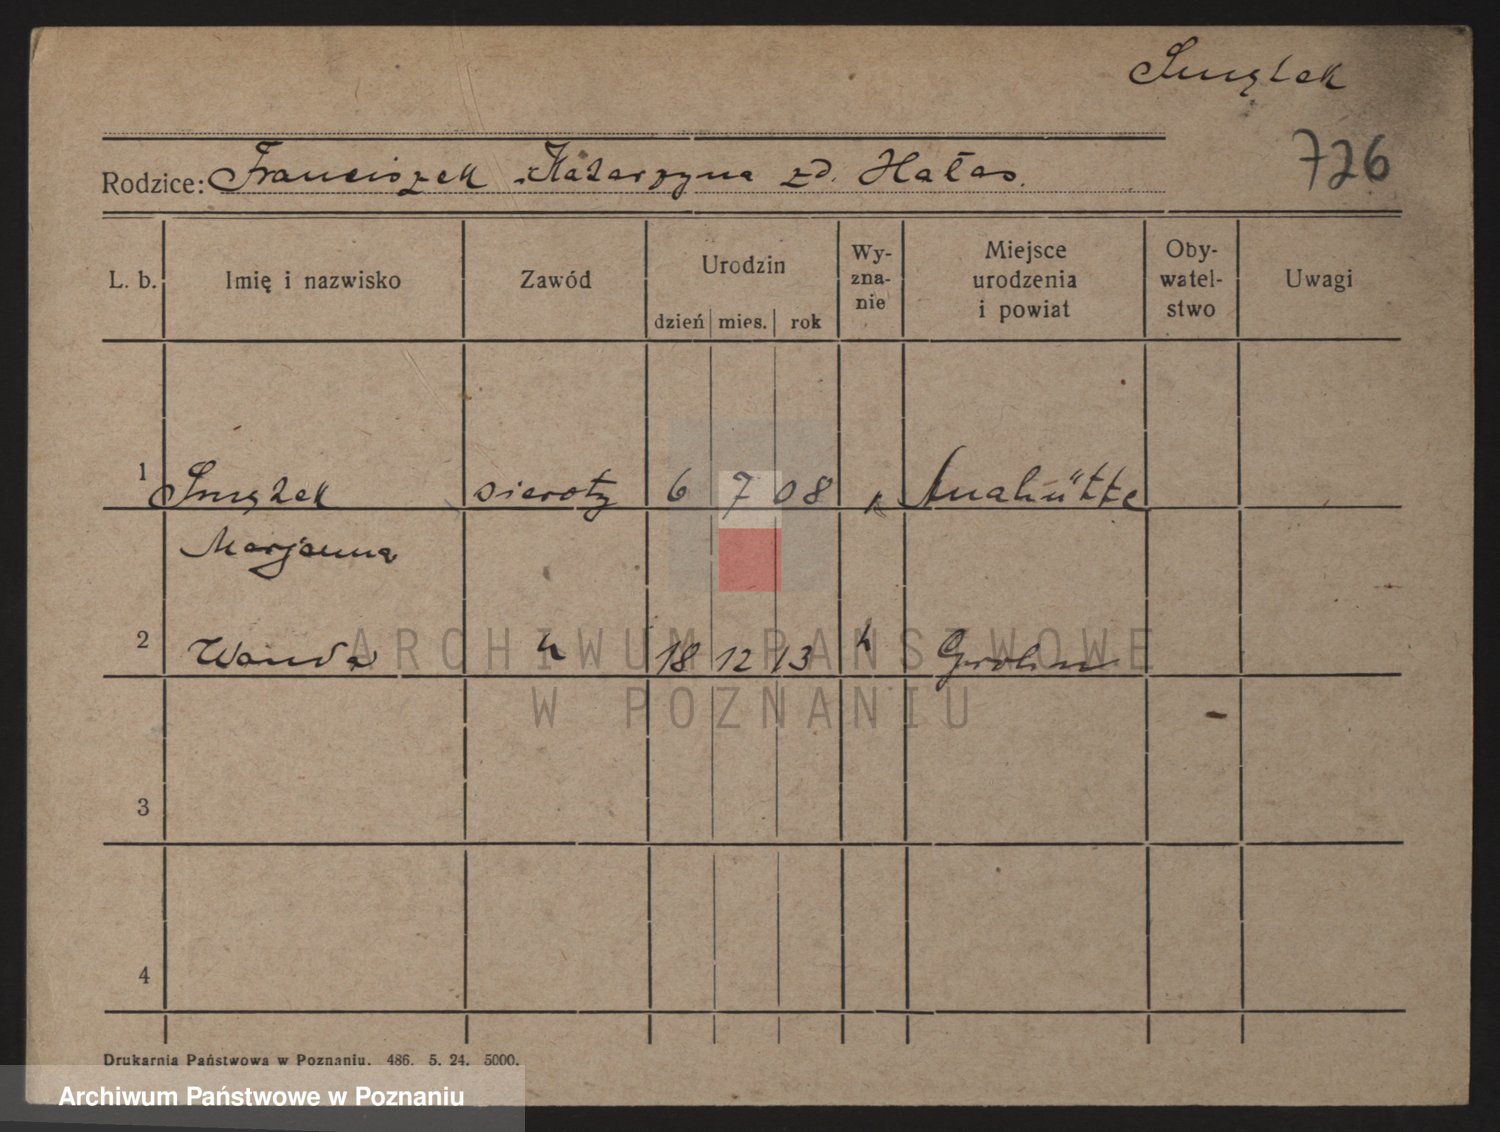 Smętek
726
Rodzice: Franciszek Katarzyna zd. Hałas.
L. b. Imię i nazwisko Zawód Urodzin Wy-zna-nie Miejsce urodzenia i powiat Oby-watel-stwo Uwagi
dzień mies. rok
1 sieroty 6 7 08 k
Marjanna
2 Wanda 18 12 13
3
4
ARCHIWUM PAŃSTWOWE
W POZNANIU
Drukarnia Państwowa w Poznaniu. 486. 5. 24. 5000.
Archiwum Państwowe w Poznaniu